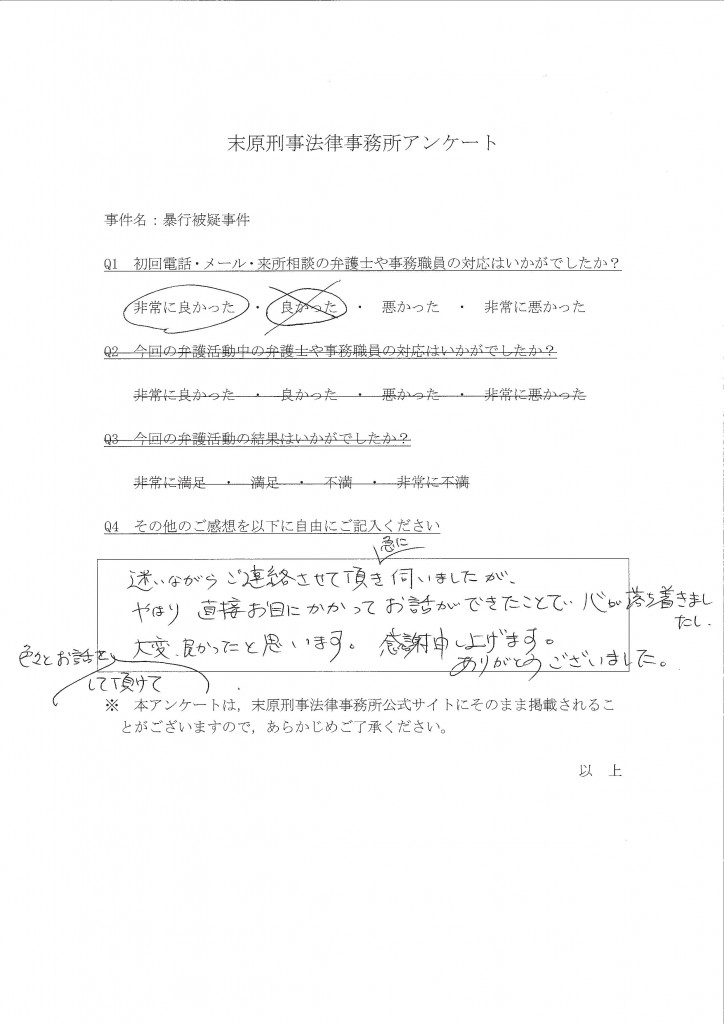 末原刑事法律事務所アンケート
事件名：暴行被疑事件
Q1　初回電話・メール・来所相談の弁護士や事務職員の対応はいかがでしたか？
非常に良かった　・　良かった　・　悪かった　・　非常に悪かった
Q2　今回の弁護活動中の弁護士や事務職員の対応はいかがでしたか？
非常に良かった　・　良かった　・　悪かった　・　非常に悪かった
Q3　今回の弁護活動の結果はいかがでしたか？
非常に満足　・　満足　・　不満　・　非常に不満
Q4　その他のご感想を以下に自由にご記入ください
急に
迷いながらご連絡させて頂き伺いましたが、
やはり直接お目にかかってお話ができたことで、心が落ち着きまし
たし、
色々とお話を
して頂けて
大変、良かったと思います。感謝申し上げます。
ありがとうございました。
※　本アンケートは，末原刑事法律事務所公式サイトにそのまま掲載されるこ
とがございますので，あらかじめご了承ください。
以　上